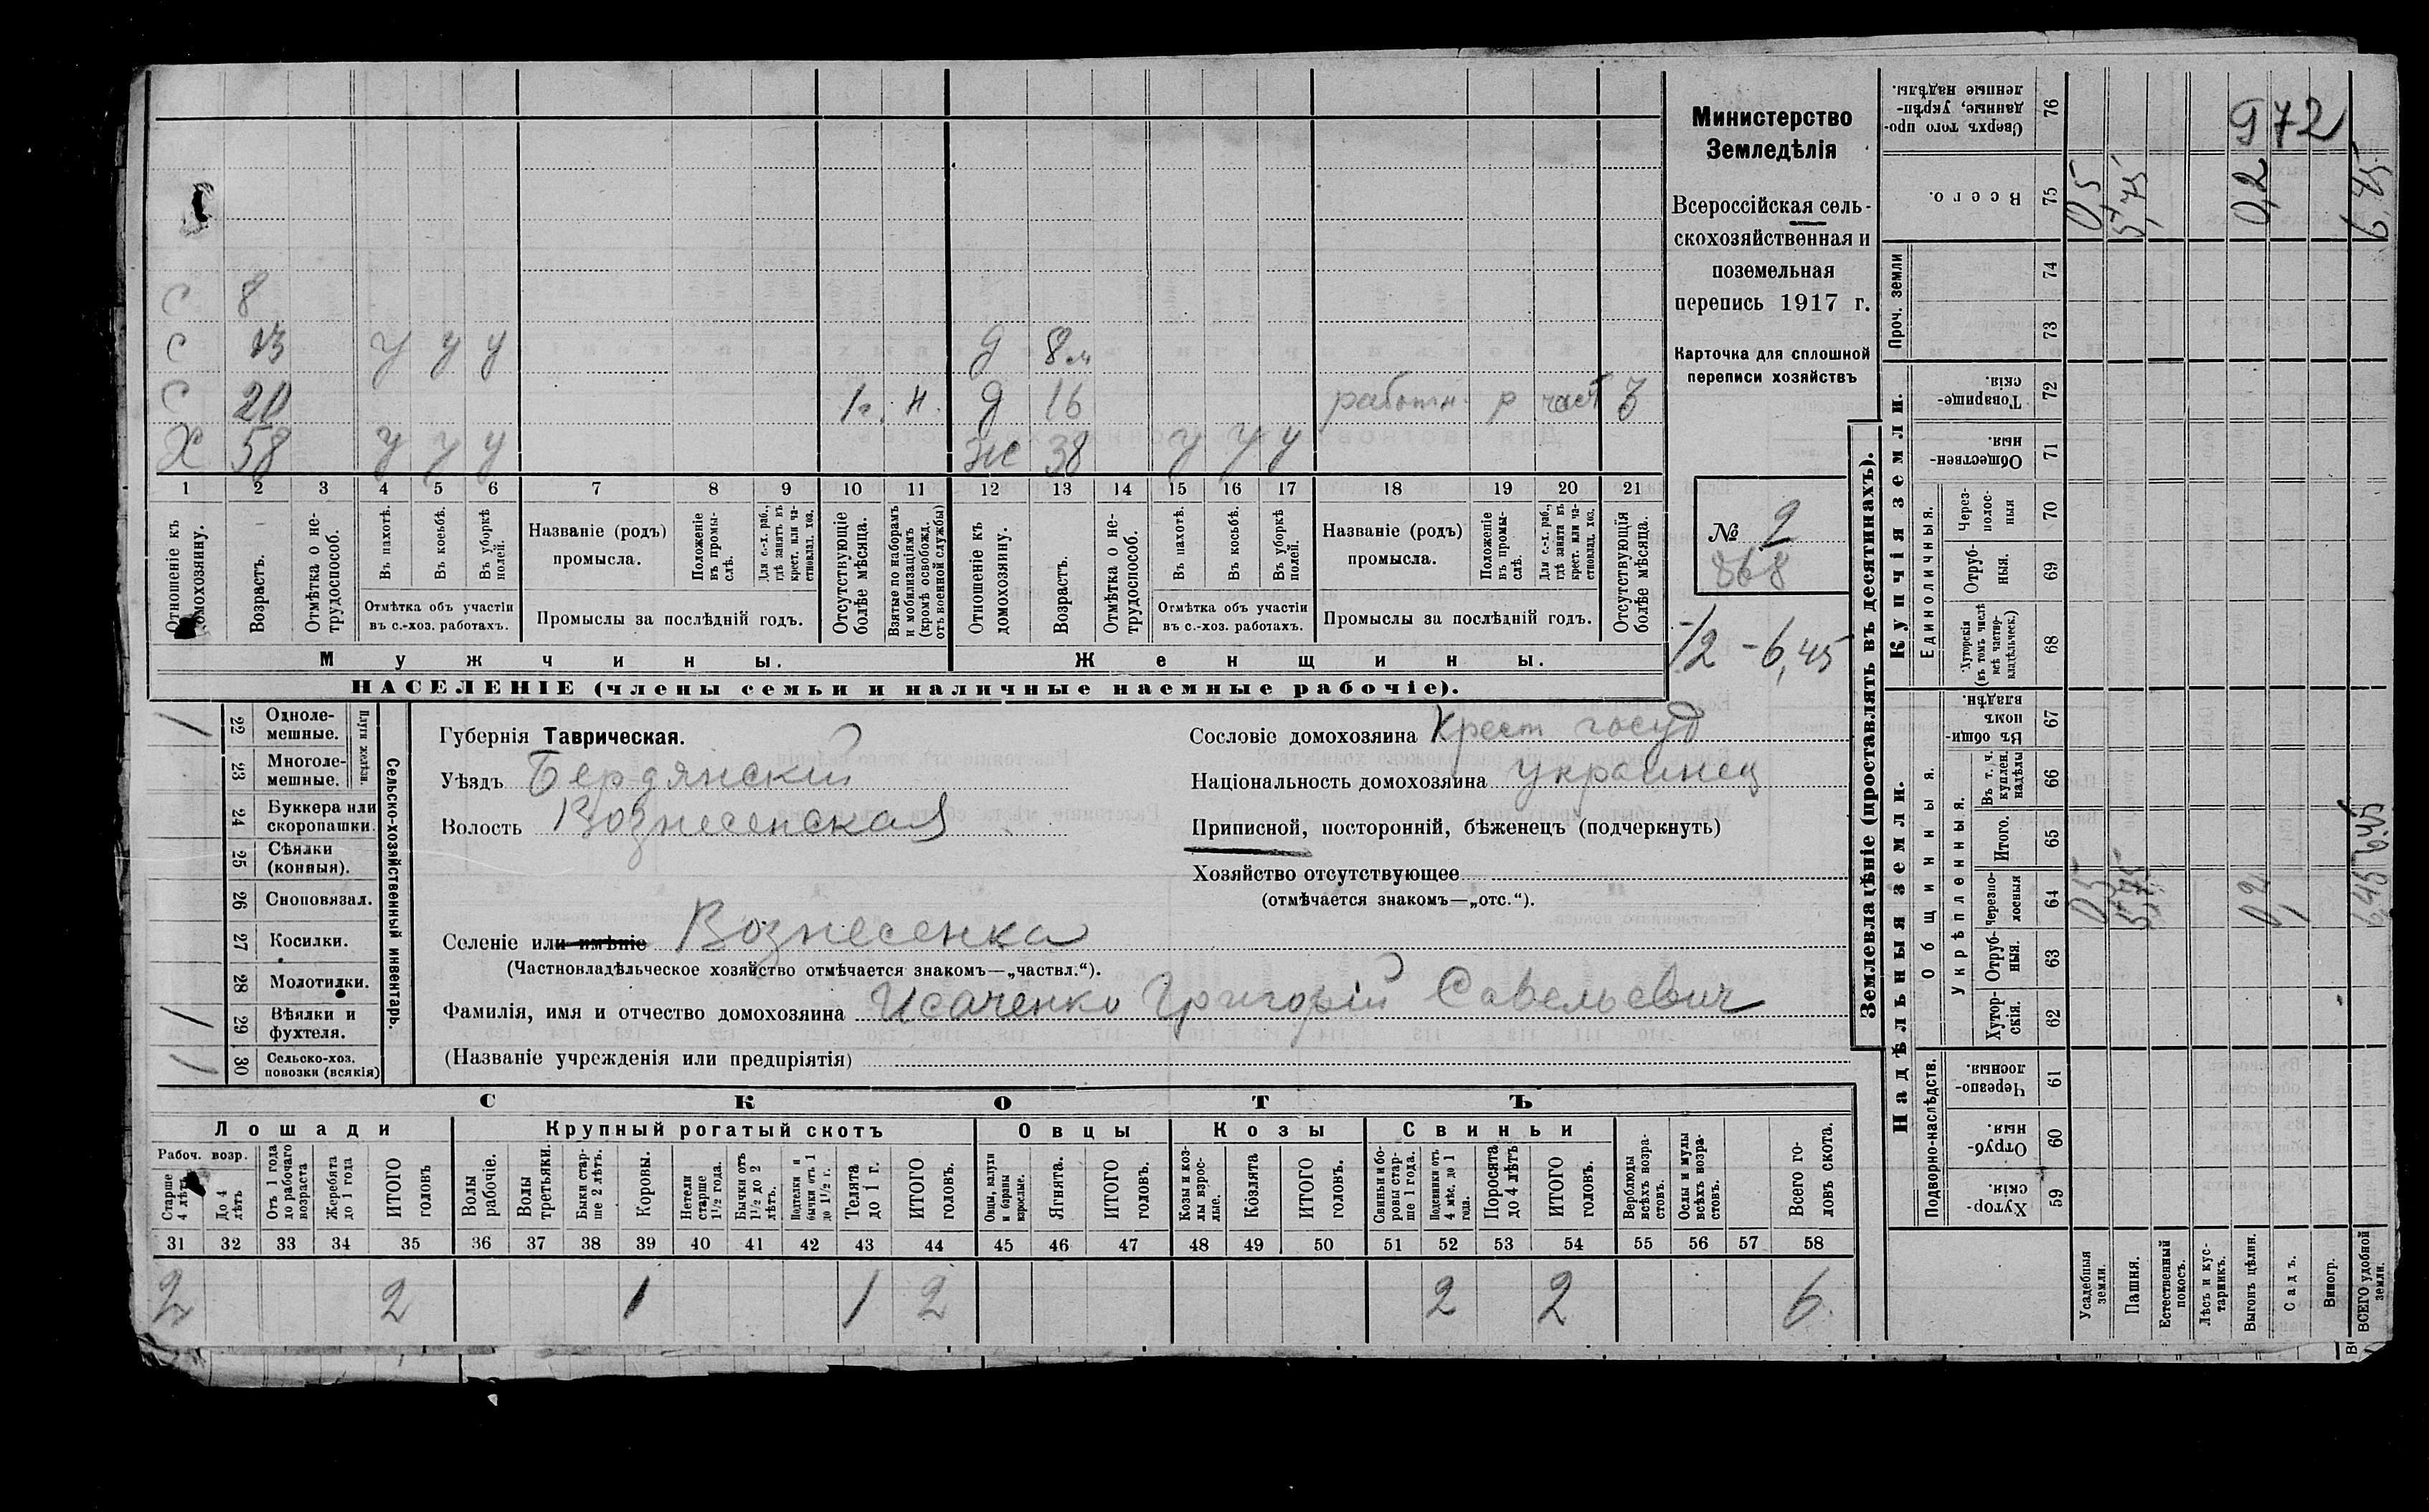 Министерство
Земледѣлія
Всероссійская сель-
скохозяйственная и
поземельная
перепись 1917 г.
Карточка для сплошной
переписи хозяйствъ
№ 9
868
-/2 -6,45
972
С 8
С 13 У У У Д 8 м
С 20 1 г. н. Д 16 работн. р част 3
Х 58 У У У Ж 38 У У У
1 2 3 4 5 6 7 8 9 10 11 12 13 14 15 16 17 18 19 20 21
Отношеніе къ домохозяину.
Возрастъ.
Отмѣтка о не-трудоспособ.
Въ пахотѣ.
Въ косьбѣ.
Въ уборкѣ полей.
Отмѣтка объ участіи
въ с.-хоз. работахъ.
Названіе (родъ)
промысла.
Положеніе въ промы-слѣ.
Для с.-х. раб., гдѣ занятъ въ крест. или ча-стновлад. хоз.
Промыслы за послѣдній годъ.
Отсутствующіе болѣе мѣсяца.
Взятые по наборамъ и мобилизаціямъ (кромѣ освобожд. отъ военной службы)
Отношеніе къ домохозяину.
Возрастъ.
Отмѣтка о не-трудоспособ.
Въ пахотѣ.
Въ косьбѣ.
Въ уборкѣ полей.
Отмѣтка объ участіи
въ с.-хоз. работахъ.
Названіе (родъ)
промысла.
Положеніе въ промы-слѣ.
Для с.-х. раб., гдѣ занята въ крест. или ча-стновлад. хоз.
Промыслы за послѣдній годъ.
Отсутствующія болѣе мѣсяца.
Мужчины. Женщины.
НАСЕЛЕНІЕ (члены семьи и наличные наемные рабочіе).
Сельско-хозяйственный инвентарь.
Плуги желѣзн.
1 22 Одноле-мешные.
23 Многоле-мешные.
24 Буккера или скоропашки.
25 Сѣялки (конныя).
26 Сноповязал.
27 Косилки.
28 Молотилки.
1 29 Вѣялки и фухтеля.
1 30 Сельско-хоз. повозки (всякія)
Губернія Таврическая.
Уѣздъ Бердянскій
Волость Вознесенская
Сословіе домохозяина Крест госуд
Національность домохозяина украинец
Приписной, посторонній, бѣженецъ (подчеркнуть)
Хозяйство отсутствующее
(отмѣчается знакомъ—„отс.“).
Селеніе или имѣніе Вознесенка
(Частновладѣльческое хозяйство отмѣчается знакомъ—„частвл.“).
Фамилія, имя и отчество домохозяина Исаченко Григорій Савельевич
(Названіе учрежденія или предпріятія)
СКОТЪ
Лошади Крупный рогатый скотъ Овцы Козы Свиньи
Рабоч. возр.
Старше 4 лѣтъ
До 4 лѣтъ
Отъ 1 года до рабочаго возраста
Жеребята до 1 года
ИТОГО головъ
Волы рабочіе.
Волы третьяки.
Быки стар-ше 2 лѣтъ.
Коровы.
Нетели старше 1½ года.
Бычки отъ 1½ до 2 лѣтъ.
Подтелки и бычки отъ 1 до 1½ г.
Телята до 1 г.
ИТОГО головъ.
Овцы, валухи и бараны взрослые.
Ягнята.
ИТОГО головъ.
Козы и коз-лы взрос-лые.
Козлята
ИТОГО головъ.
Свиньи и бо-ровы стар-ше 1 года.
Подсвинки отъ 4 мѣс. до 1 года.
Поросята до 4 лѣтъ
ИТОГО головъ.
Верблюды всѣхъ возра-стовъ.
Ослы и мулы всѣхъ возра-стовъ.
Всего го-ловъ скота.
31 32 33 34 35 36 37 38 39 40 41 42 43 44 45 46 47 48 49 50 51 52 53 54 55 56 57 58
2 2 1 1 2 2 2 6
Землевладѣніе (проставлять въ десятинахъ).
Надѣльныя земли.
Купчія земли.
Проч. земли
Сверхъ того про-данные, укрѣп-ленные надѣлы. 76
Всего. 75
74
73
Товарище-скія. 72
Обществен-ныя. 71
Единоличныя.
Через-полос-ныя 70
Отруб-ныя. 69
Хуторскія (въ томъ числѣ всѣ частно-владѣльческ.) 68
Общинныя.
Въ общи-номъ владѣн. 67
Укрѣпленныя.
Въ т. ч. куплен. надѣлы 66
Итого. 65
Черезпо-лосныя 64
Отруб-ныя. 63
Хутор-скія. 62
Подворно-наслѣдств.
Черезпо-лосныя. 61
Отруб-ныя. 60
Хутор-скія. 59
Усадебныя земли. 0,5 0,5
Пашня. 5,75 5,75
Естественный покосъ.
Лѣсъ и кус-тарникъ.
Выгонъ цѣлин. 0,2 0,2
Садъ.
Виногр.
ВСЕГО удобной земли. 6,45 6,45 6,45